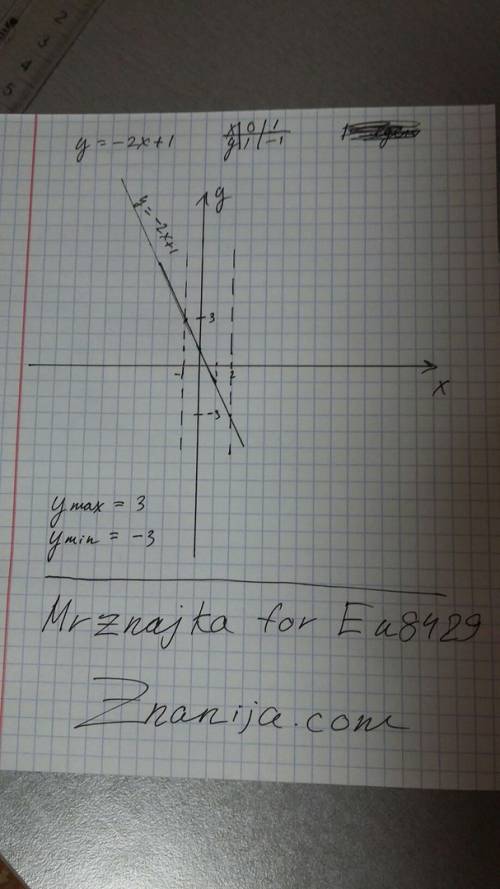 2 3 4 5
y = -2x+1
x 0 1
y 1 -1
y
y = -2x+1
3
-1 2
x
-3
y max = 3
y min = -3
Mrznajka for Eu8429
Znanija.com